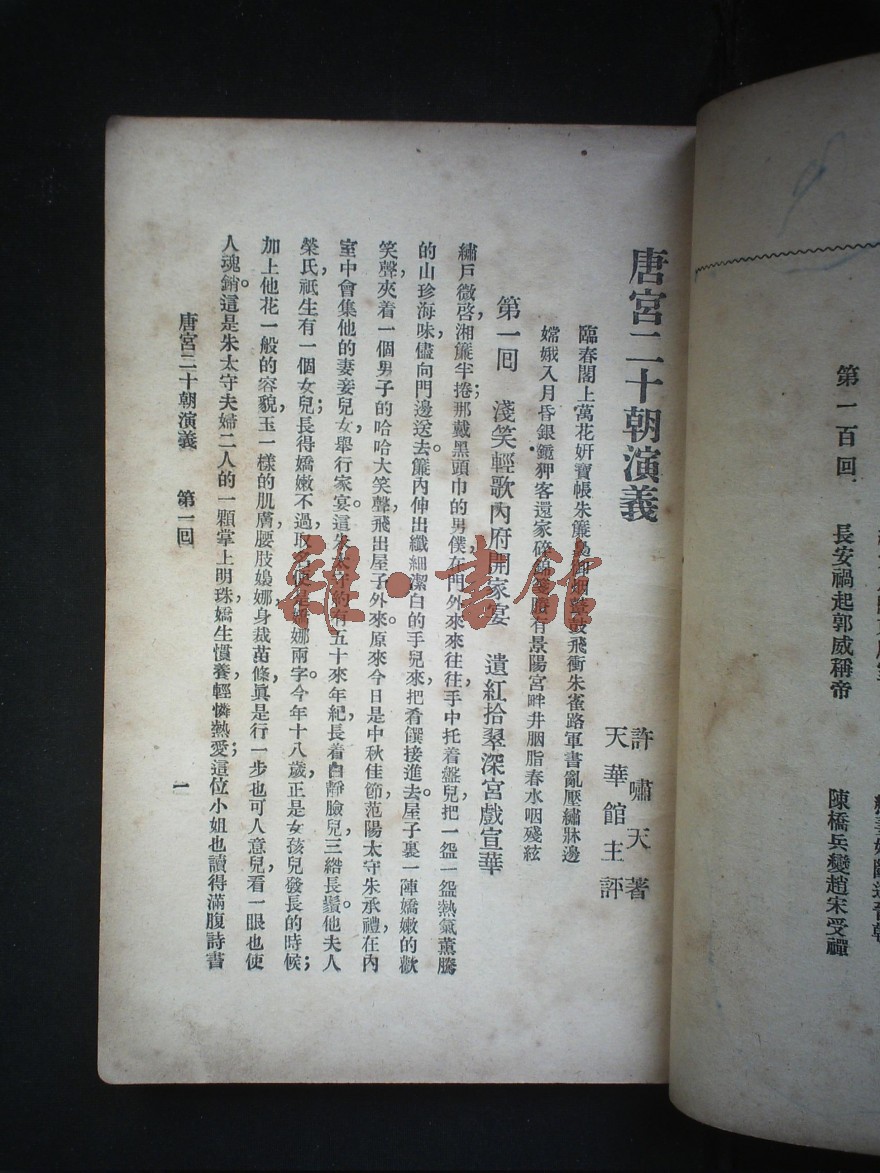 第一百回　長安禍起郭威稱帝
陳橋兵變趙宋受禪
唐宮二十朝演義
許嘯天著
天華館主評
臨春閣上萬花妍寶帳朱簾
鼓飛衝朱雀路軍書亂壓繡牀邊
嫦娥入月昏銀鑑狎客還家碎
有景陽宮畔井胭脂春水咽殘絃
第一回　淺笑輕歌內府開家宴　遺紅拾翠深宮戲宣華
繡戶微啓，湘簾半捲；那戴黑頭巾的男僕，在門外來來往往，手中托着盤兒，把一盌一盌熱氣薰騰
的山珍海味，儘向門邊送去。簾內伸出纖細潔白的手兒來，把肴饌接進去。屋子裏一陣嬌嫩的歡
笑聲，夾着一個男子的哈哈大笑聲，飛出屋子外來。原來今日是中秋佳節，范陽太守朱承禮，在內
室中會集他的妻妾兒女，舉行家宴。這朱太守約有五十來年紀，長着白靜臉兒，三綹長鬚。他夫人
榮氏，祇生有一個女兒；長得嬌嫩不過，取名便是嬌娜兩字。今年十八歲，正是女孩兒發長的時候；
加上他花一般的容貌，玉一樣的肌膚，腰肢嫋娜，身裁苗條，眞是行一步也可人意兒，看一眼也使
人魂銷。這是朱太守夫婦二人的一顆掌上明珠，嬌生慣養，輕憐熱愛；這位小姐也讀得滿腹詩書
唐宮二十朝演義　第一回　一
雜·書館